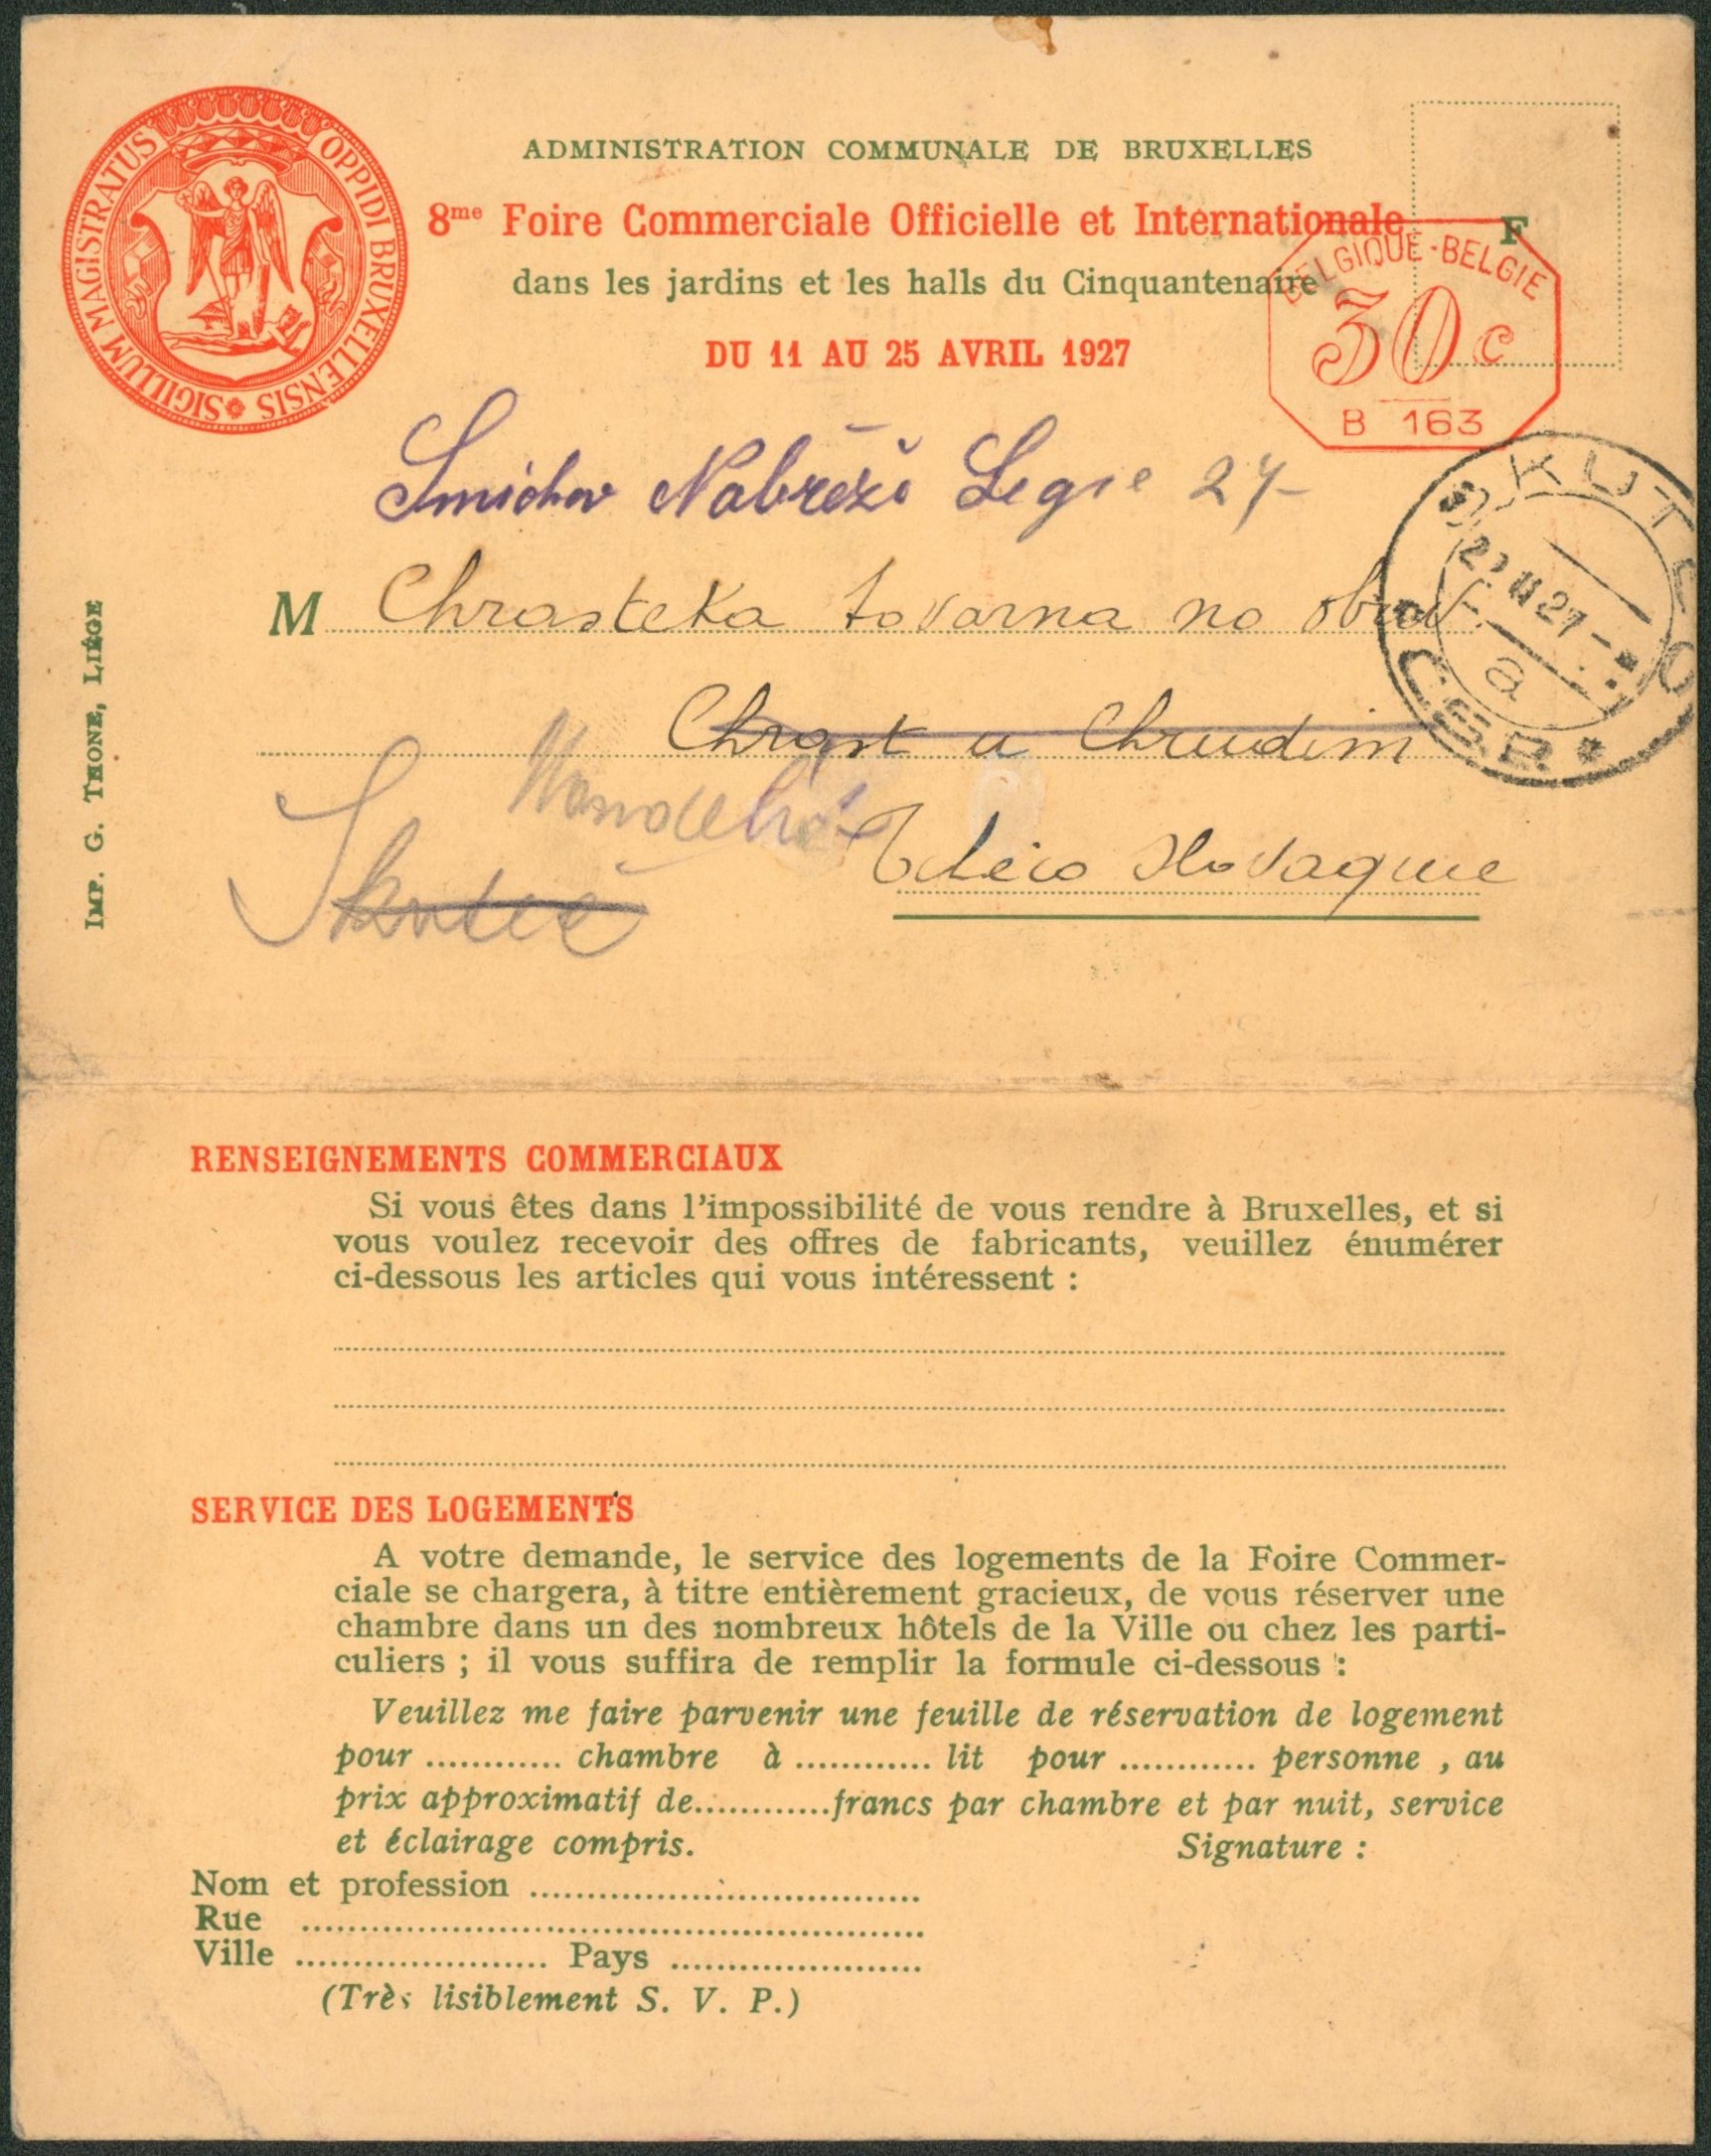 SIGILLUM MAGISTRATUS OPPIDI BRUXELLENSIS
ADMINISTRATION COMMUNALE DE BRUXELLES
8me Foire Commerciale Officielle et Internationale
F
dans les jardins et les halls du Cinquantenaire
DU 11 AU 25 AVRIL 1927
BELGIQUE-BELGIE
30 c
B 163
Smichov Nabřeži Legie 27
SKUTEČ
27
a
ČSR
M Chrasteka tovarna na obuv
Chrast u Chrudim
Skuteč
Tchéco Slovaquie
IMP. G. THONE, LIÉGE
RENSEIGNEMENTS COMMERCIAUX
Si vous êtes dans l'impossibilité de vous rendre à Bruxelles, et si
vous voulez recevoir des offres de fabricants, veuillez énumérer
ci-dessous les articles qui vous intéressent :
SERVICE DES LOGEMENTS
A votre demande, le service des logements de la Foire Commer-
ciale se chargera, à titre entièrement gracieux, de vous réserver une
chambre dans un des nombreux hôtels de la Ville ou chez les parti-
culiers ; il vous suffira de remplir la formule ci-dessous :
Veuillez me faire parvenir une feuille de réservation de logement
pour ............ chambre à ............ lit pour ............ personne , au
prix approximatif de............francs par chambre et par nuit, service
et éclairage compris. Signature :
Nom et profession ..................................
Rue ......................................................
Ville ...................... Pays ......................
(Très lisiblement S. V. P.)